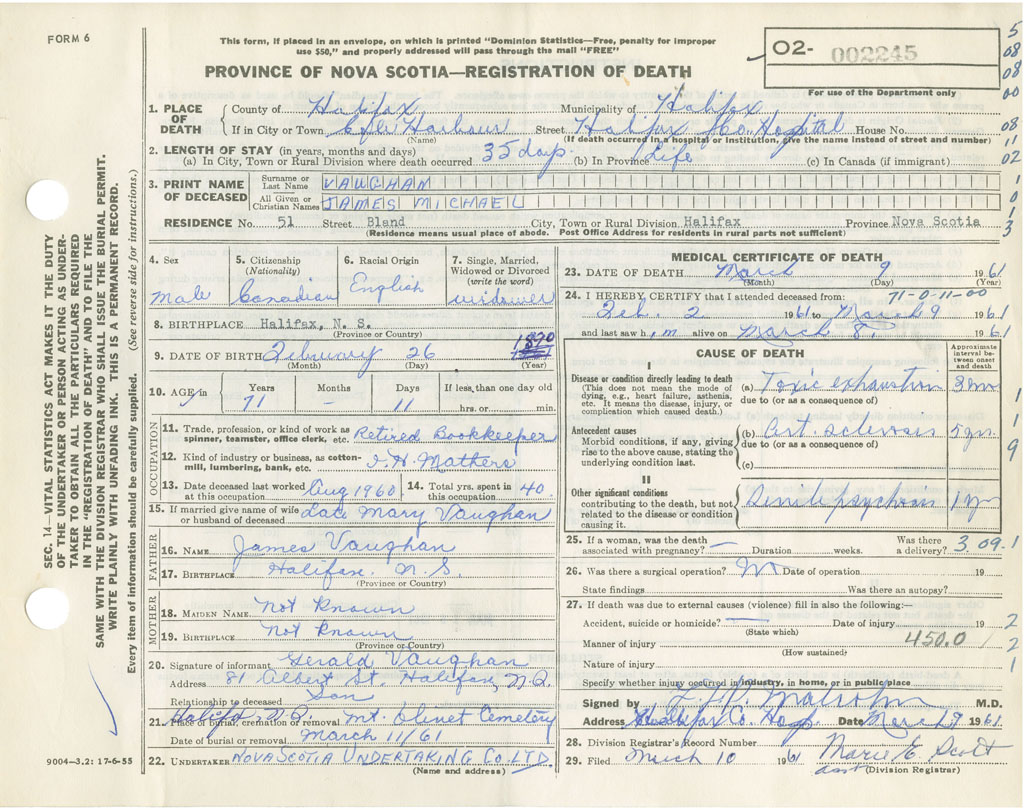 FORM 6
This form, if placed in an envelope, on which is printed "Dominion Statistics—Free, penalty for improper
use $50," and properly addressed will pass through the mail "FREE"
PROVINCE OF NOVA SCOTIA—REGISTRATION OF DEATH
O2- 002245
For use of the Department only
5
08
08
00
08
11
02
1
0
1
3
1. PLACE OF DEATH
County of Halifax Municipality of Halifax
If in City or Town Cole Harbour Street Halifax Co. Hospital House No.
(Name) (If death occurred in a hospital or institution, give the name instead of street and number)
2. LENGTH OF STAY (in years, months and days)
(a) In City, Town or Rural Division where death occurred 35 days. (b) In Province Life (c) In Canada (if immigrant)
3. PRINT NAME OF DECEASED
Surname or Last Name VAUGHAN
All Given or Christian Names JAMES MICHAEL
RESIDENCE No. 51 Street Bland City, Town or Rural Division Halifax Province Nova Scotia
(Residence means usual place of abode. Post Office Address for residents in rural parts not sufficient)
4. Sex Male
5. Citizenship (Nationality) Canadian
6. Racial Origin English
7. Single, Married, Widowed or Divorced (write the word) widower
8. BIRTHPLACE Halifax, N. S.
(Province or Country)
9. DATE OF BIRTH February 26 1890
(Month) (Day) (Year)
10. AGE in Years Months Days If less than one day old
71 — 11 hrs. or min.
OCCUPATION
11. Trade, profession, or kind of work as spinner, teamster, office clerk, etc. Retired Bookkeeper
12. Kind of industry or business, as cotton-mill, lumbering, bank, etc. I. H. Mathers
13. Date deceased last worked at this occupation Aug 1960
14. Total yrs. spent in this occupation 40
15. If married give name of wife or husband of deceased Late Mary Vaughan
FATHER
16. NAME James Vaughan
17. BIRTHPLACE Halifax. N.S.
(Province or Country)
MOTHER
18. MAIDEN NAME Not Known
19. BIRTHPLACE Not Known
(Province or Country)
20. Signature of informant Gerald Vaughan
Address 81 Albert St. Halifax, N.S.
Relationship to deceased Son
21. Place of burial, cremation or removal Mt. Olivet Cemetery
Date of burial or removal March 11/61
22. UNDERTAKER NOVA SCOTIA UNDERTAKING CO. LTD.
(Name and address)
MEDICAL CERTIFICATE OF DEATH
23. DATE OF DEATH March 9 1961
(Month) (Day)
24. I HEREBY CERTIFY that I attended deceased from: 71-0-11-00
Feb. 2 1961 to March 9 1961
and last saw him alive on March 8. 1961
CAUSE OF DEATH
Approximate interval between onset and death
I
Disease or condition directly leading to death
(This does not mean the mode of dying, e.g., heart failure, asthenia, etc. It means the disease, injury, or complication which caused death.)
(a) Toxic exhaustion
due to (or as a consequence of)
Antecedent causes
Morbid conditions, if any, giving rise to the above cause, stating the underlying condition last.
(b) Art. sclerosis 5 yrs.
due to (or as a consequence of)
(c)
II
Other significant conditions
contributing to the death, but not related to the disease or condition causing it.
Senile psychosis 1 yr
1
1
9
1
25. If a woman, was the death associated with pregnancy? — Duration weeks. Was there a delivery? 3.09.1
26. Was there a surgical operation? No Date of operation 19
State findings Was there an autopsy?
27. If death was due to external causes (violence) fill in also the following:—
Accident, suicide or homicide? — Date of injury 19 2
(State which)
Manner of injury 450.0 / 2
(How sustained)
Nature of injury 1
Specify whether injury occurred in industry, in home, or in public place
Signed by Malcolm M.D.
Address Halifax Co. Hosp. Date March 9 1961
28. Division Registrar's Record Number
29. Filed March 10 1961 Marie E. Scott
(Division Registrar)
SEC. 14—VITAL STATISTICS ACT MAKES IT THE DUTY
OF THE UNDERTAKER OR PERSON ACTING AS UNDER-
TAKER TO OBTAIN ALL THE PARTICULARS REQUIRED
IN THE "REGISTRATION OF DEATH" AND TO FILE THE
SAME WITH THE DIVISION REGISTRAR WHO SHALL ISSUE THE BURIAL PERMIT.
WRITE PLAINLY WITH UNFADING INK. THIS IS A PERMANENT RECORD.
Every item of information should be carefully supplied. (See reverse side for instructions.)
9004—3.2: 17-6-55